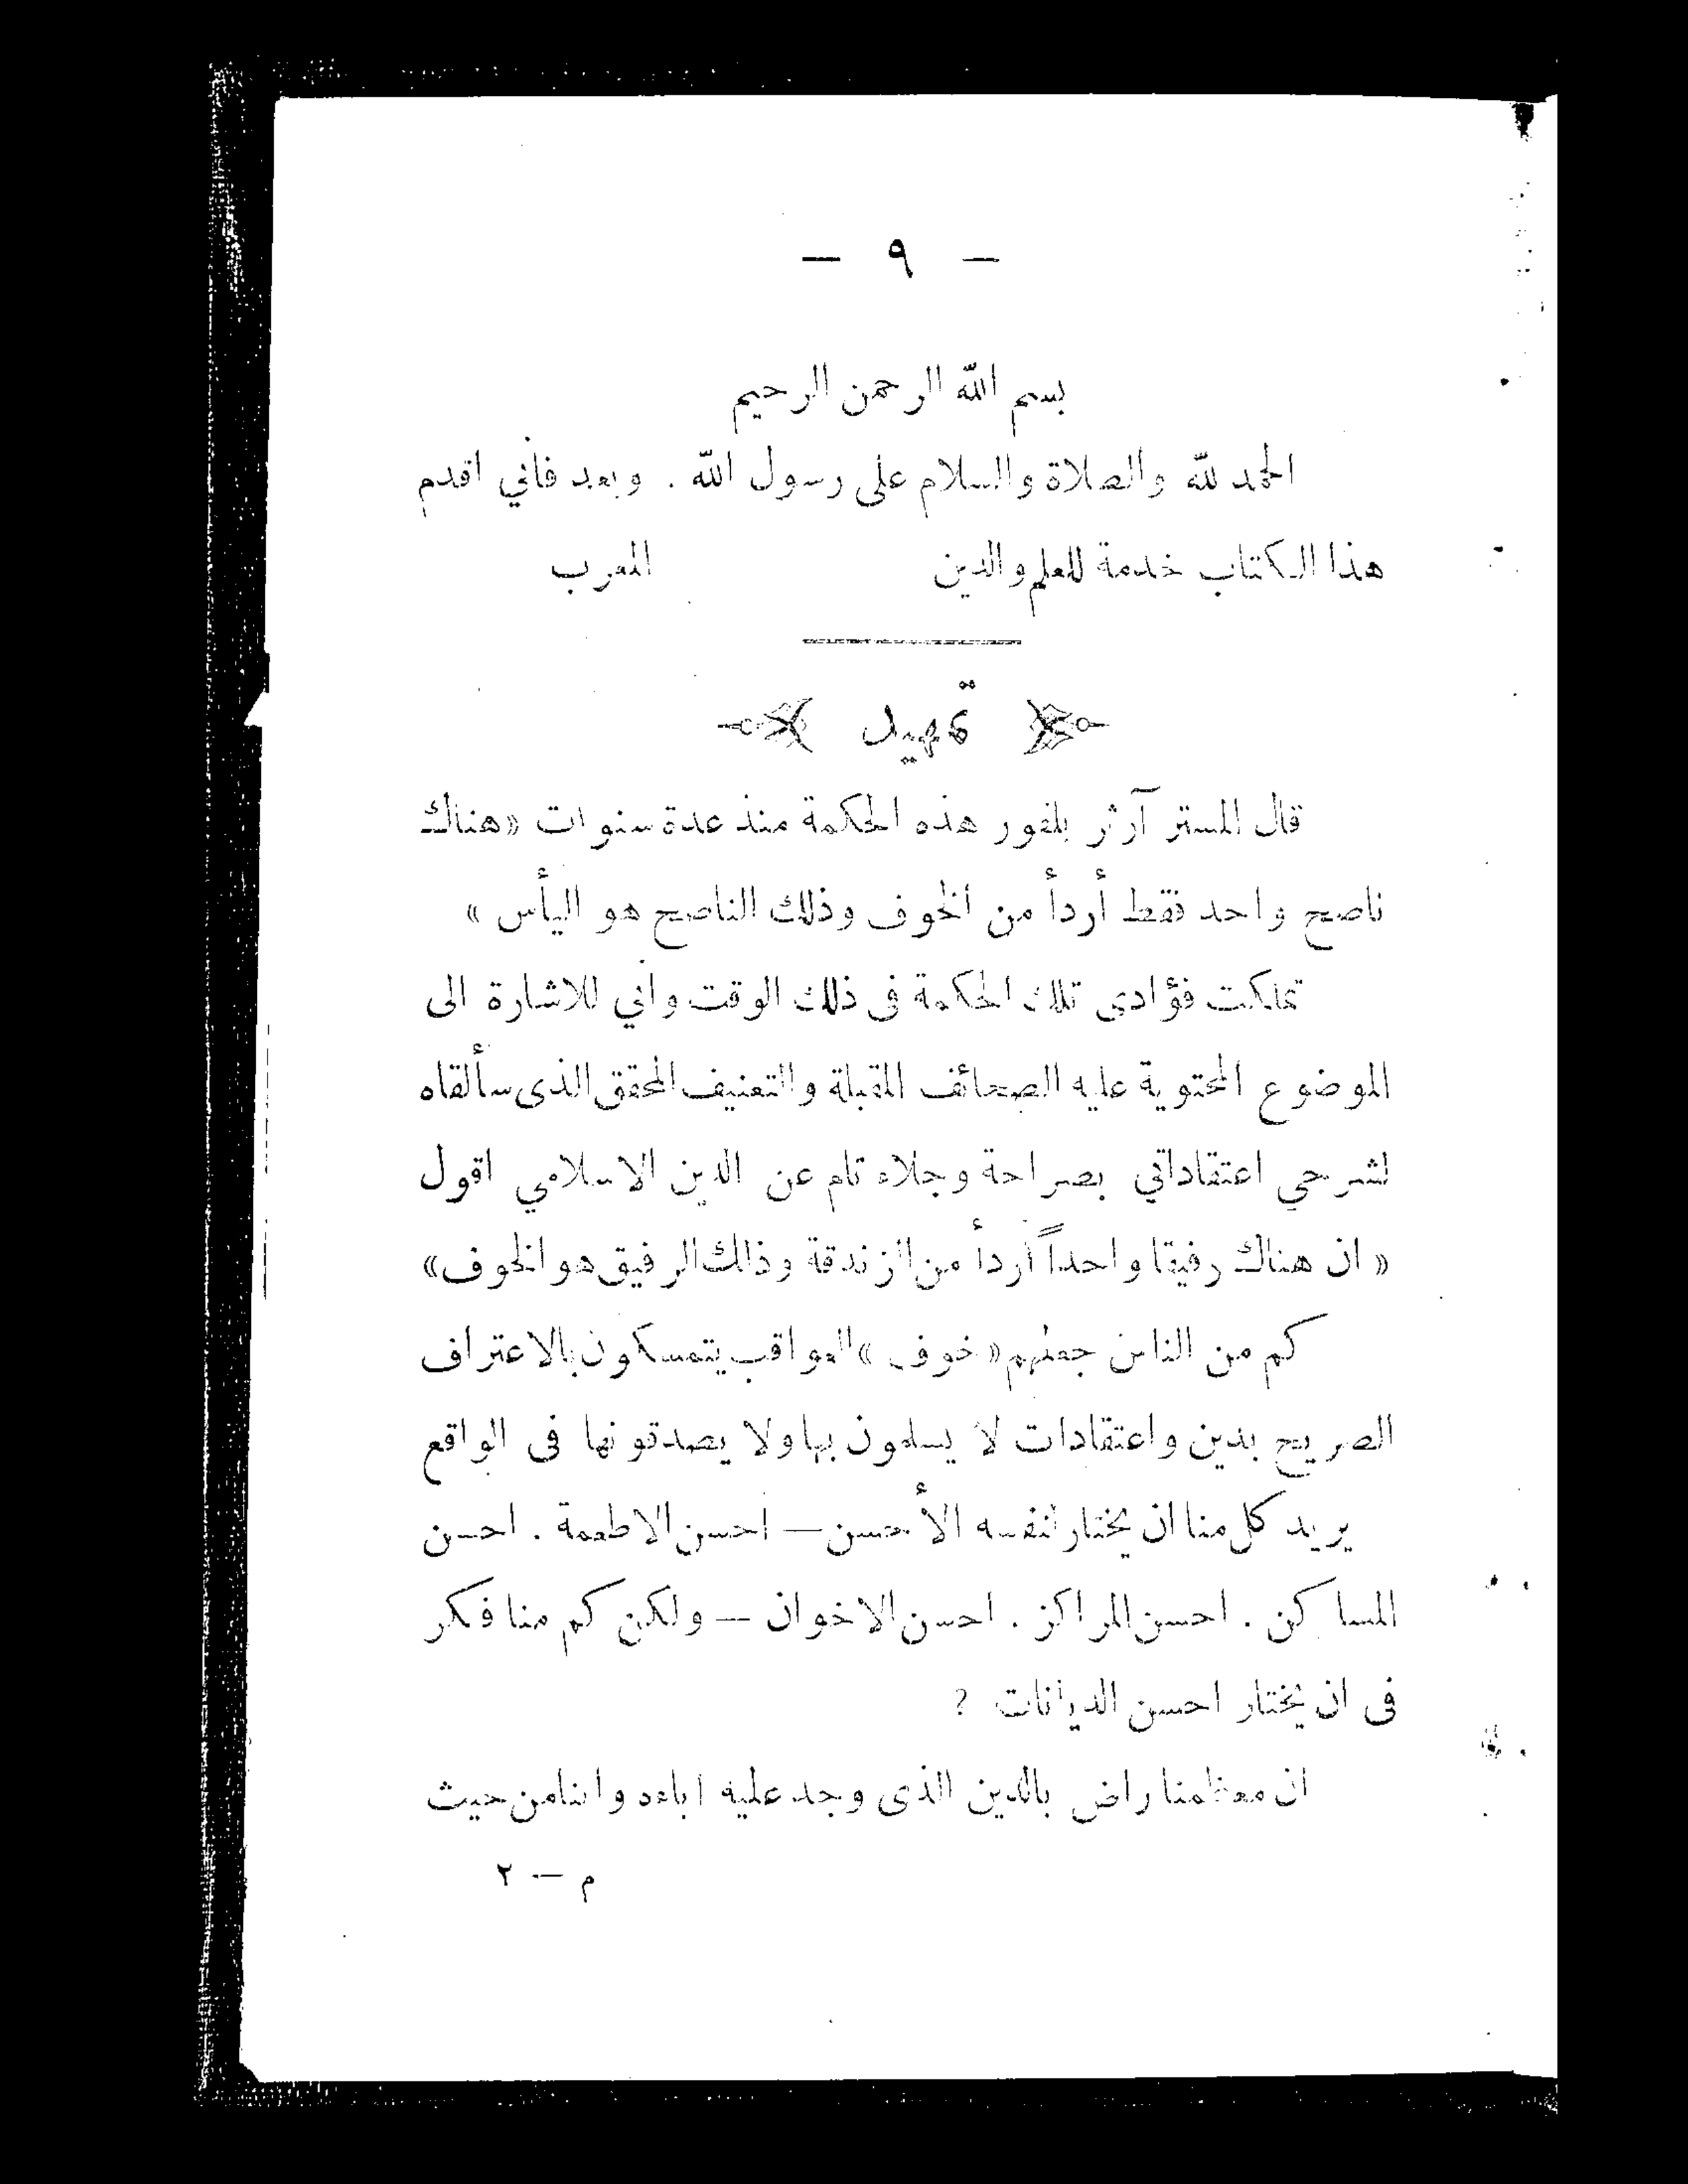 — ٩ —
بسم الله الرحمن الرحيم
الحمد لله والصلاة والسلام على رسول الله . وبعد فأني اقدم
هذا الكتاب خدمة للعلم والدين المعرب
تمهيد
قال المستر آرثر بلفور هذه الحكمة منذ عدة سنوات «هناك
ناصح واحد فقط أردأ من الخوف وذلك الناصح هو اليأس »
تملكت فؤادى تلك الحكمة فى ذلك الوقت وأني للاشارة الى
الموضوع المحتوية عليه الصحائف المقبلة والتعنيف المحقق الذى سألقاه
لشرحي اعتقاداتي بصراحة وجلاء تام عن الدين الاسلامي اقول
« ان هناك رفيقا واحداً أردأ من الزندقة وذالك الرفيق هو الخوف»
كم من الناس جعلهم «خوف » العواقب يتمسكون بالاعتراف
الصريح بدين واعتقادات لا يسلمون بها ولا يصدقونها فى الواقع
يريد كل منا ان يختار لنفسه الأحسن — احسن الاطعمة . احسن
المساكن . احسن المراكز . احسن الاخوان — ولكن كم منا فكر
فى ان يختار احسن الديانات ?
ان معظمنا راض بالدين الذى وجد عليه اباءه واننا من حيث
م — ٢